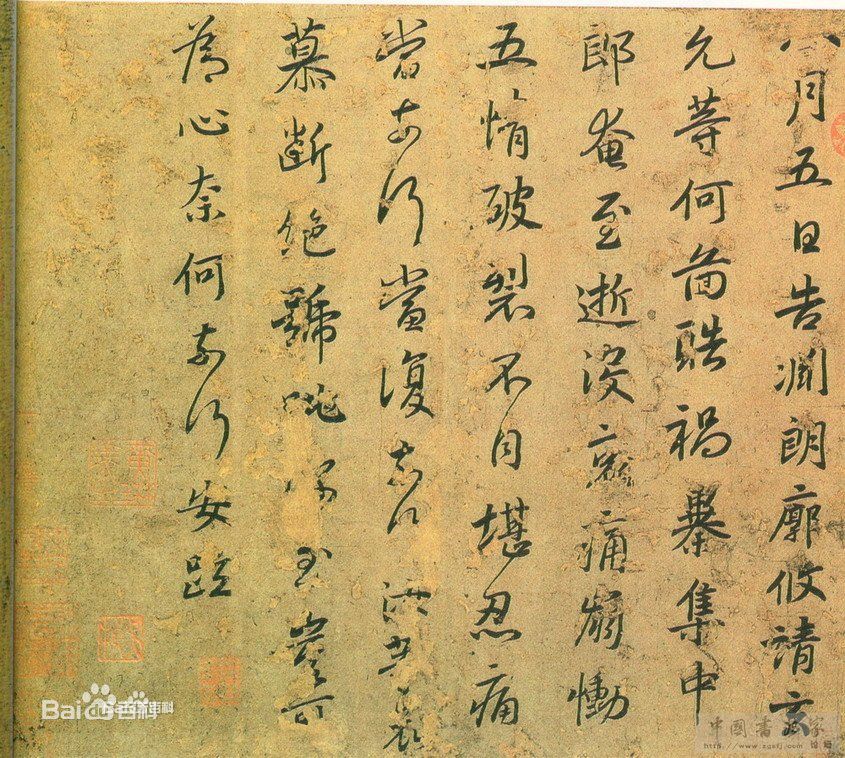 八月五日告淵朗廓攸靖玄
允等何圖酷禍暴集中
郎奄至逝沒哀痛崩慟
五情破裂不自堪忍痛
當奈何當復奈何汝等哀
慕斷絕號咷深至豈可
為心奈何奈何安疏
Bai百科
http://www.zgsfj.com